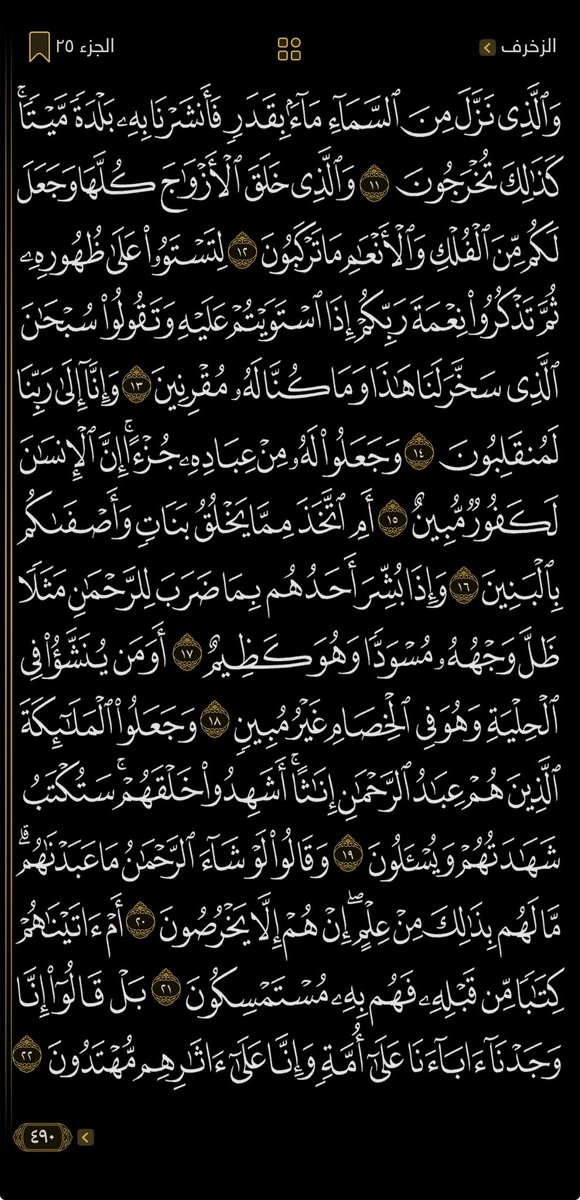 الزخرف
الجزء ٢٥
وَٱلَّذِى نَزَّلَ مِنَ ٱلسَّمَآءِ مَآءًۢ بِقَدَرٍ فَأَنشَرْنَا بِهِۦ بَلْدَةً مَّيْتًا ۚ
كَذَٰلِكَ تُخْرَجُونَ ١١ وَٱلَّذِى خَلَقَ ٱلْأَزْوَٰجَ كُلَّهَا وَجَعَلَ
لَكُم مِّنَ ٱلْفُلْكِ وَٱلْأَنْعَٰمِ مَا تَرْكَبُونَ ١٢ لِتَسْتَوُۥا۟ عَلَىٰ ظُهُورِهِۦ
ثُمَّ تَذْكُرُوا۟ نِعْمَةَ رَبِّكُمْ إِذَا ٱسْتَوَيْتُمْ عَلَيْهِ وَتَقُولُوا۟ سُبْحَٰنَ
ٱلَّذِى سَخَّرَ لَنَا هَٰذَا وَمَا كُنَّا لَهُۥ مُقْرِنِينَ ١٣ وَإِنَّآ إِلَىٰ رَبِّنَا
لَمُنقَلِبُونَ ١٤ وَجَعَلُوا۟ لَهُۥ مِنْ عِبَادِهِۦ جُزْءًا ۚ إِنَّ ٱلْإِنسَٰنَ
لَكَفُورٌ مُّبِينٌ ١٥ أَمِ ٱتَّخَذَ مِمَّا يَخْلُقُ بَنَاتٍ وَأَصْفَىٰكُم
بِٱلْبَنِينَ ١٦ وَإِذَا بُشِّرَ أَحَدُهُم بِمَا ضَرَبَ لِلرَّحْمَٰنِ مَثَلًا
ظَلَّ وَجْهُهُۥ مُسْوَدًّا وَهُوَ كَظِيمٌ ١٧ أَوَمَن يُنَشَّؤُا۟ فِى
ٱلْحِلْيَةِ وَهُوَ فِى ٱلْخِصَامِ غَيْرُ مُبِينٍ ١٨ وَجَعَلُوا۟ ٱلْمَلَٰٓئِكَةَ
ٱلَّذِينَ هُمْ عِبَٰدُ ٱلرَّحْمَٰنِ إِنَٰثًا ۚ أَشَهِدُوا۟ خَلْقَهُمْ ۚ سَتُكْتَبُ
شَهَٰدَتُهُمْ وَيُسْـَٔلُونَ ١٩ وَقَالُوا۟ لَوْ شَآءَ ٱلرَّحْمَٰنُ مَا عَبَدْنَٰهُم ۗ
مَّا لَهُم بِذَٰلِكَ مِنْ عِلْمٍ ۖ إِنْ هُمْ إِلَّا يَخْرُصُونَ ٢٠ أَمْ ءَاتَيْنَٰهُمْ
كِتَٰبًا مِّن قَبْلِهِۦ فَهُم بِهِۦ مُسْتَمْسِكُونَ ٢١ بَلْ قَالُوٓا۟ إِنَّا
وَجَدْنَآ ءَابَآءَنَا عَلَىٰٓ أُمَّةٍ وَإِنَّا عَلَىٰٓ ءَاثَٰرِهِم مُّهْتَدُونَ ٢٢
٤٩٠